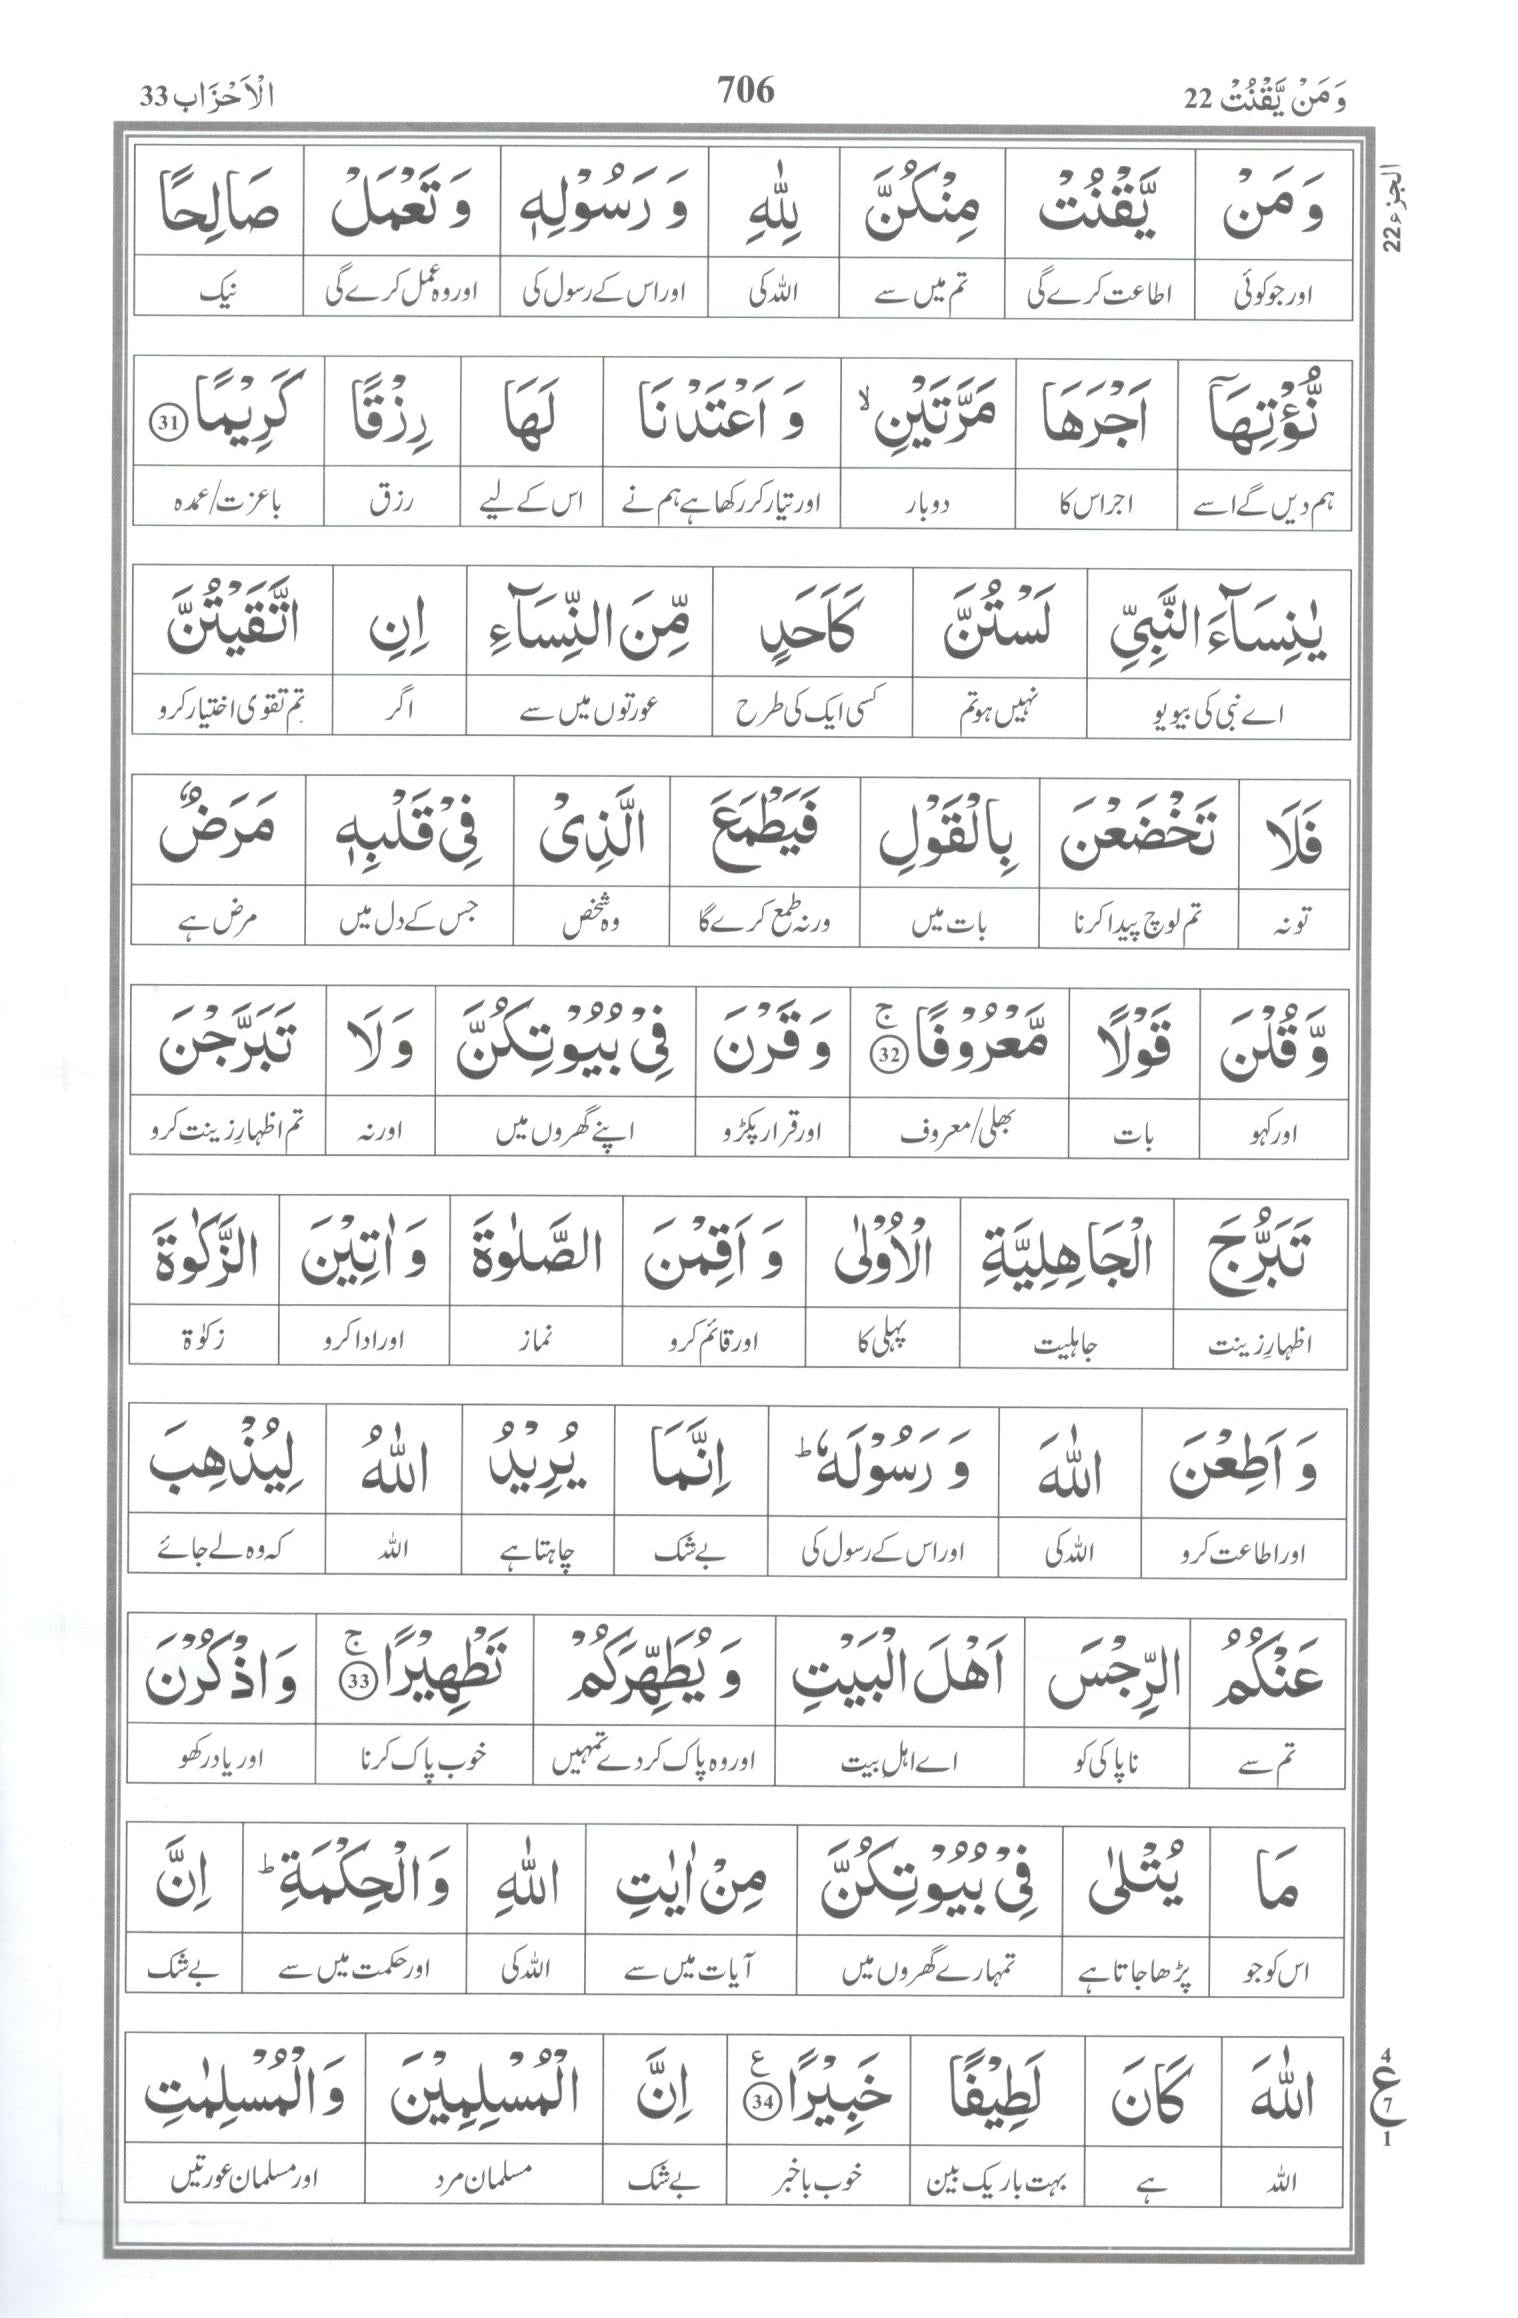 وَمَنْ يَّقْنُتْ 22 706 الْاَحْزَاب 33
الجزء 22
وَ مَنْ يَّقْنُتْ مِنْكُنَّ لِلّٰهِ وَ رَسُوْلِهٖ وَ تَعْمَلْ صَالِحًا
اور جو کوئی اطاعت کرے گی تم میں سے اللہ کی اور اس کے رسول کی اور وہ عمل کرے گی نیک
نُّؤْتِهَآ اَجْرَهَا مَرَّتَيْنِ ۙ وَ اَعْتَدْنَا لَهَا رِزْقًا كَرِيْمًا 31
ہم دیں گے اسے اجر اس کا دوبار اور تیار کر رکھا ہے ہم نے اس کے لیے رزق باعزت/عمدہ
يٰنِسَآءَ النَّبِيِّ لَسْتُنَّ كَاَحَدٍ مِّنَ النِّسَآءِ اِنِ اتَّقَيْتُنَّ
اے نبی کی بیویو نہیں ہو تم کسی ایک کی طرح عورتوں میں سے اگر تم تقوی اختیار کرو
فَلَا تَخْضَعْنَ بِالْقَوْلِ فَيَطْمَعَ الَّذِىْ فِىْ قَلْبِهٖ مَرَضٌ
تو نہ تم لوچ پیدا کرنا بات میں ورنہ طمع کرے گا وہ شخص جس کے دل میں مرض ہے
وَّ قُلْنَ قَوْلًا مَّعْرُوْفًا 32 ج وَ قَرْنَ فِىْ بُيُوْتِكُنَّ وَ لَا تَبَرَّجْنَ
اور کہو بات بھلی/معروف اور قرار پکڑو اپنے گھروں میں اور نہ تم اظہارِ زینت کرو
تَبَرُّجَ الْجَاهِلِيَّةِ الْاُوْلٰى وَ اَقِمْنَ الصَّلٰوةَ وَ اٰتِيْنَ الزَّكٰوةَ
اظہارِ زینت جاہلیت پہلی کا اور قائم کرو نماز اور ادا کرو زکوٰۃ
وَ اَطِعْنَ اللّٰهَ وَ رَسُوْلَهٗ ؕ اِنَّمَا يُرِيْدُ اللّٰهُ لِيُذْهِبَ
اور اطاعت کرو اللہ کی اور اس کے رسول کی بے شک چاہتا ہے اللہ کہ وہ لے جائے
عَنْكُمُ الرِّجْسَ اَهْلَ الْبَيْتِ وَ يُطَهِّرَكُمْ تَطْهِيْرًا 33 ج وَ اذْكُرْنَ
تم سے ناپاکی کو اے اہلِ بیت اور وہ پاک کر دے تمہیں خوب پاک کرنا اور یاد رکھو
مَا يُتْلٰى فِىْ بُيُوْتِكُنَّ مِنْ اٰيٰتِ اللّٰهِ وَ الْحِكْمَةِ ؕ اِنَّ
اس کو جو پڑھا جاتا ہے تمہارے گھروں میں آیات میں سے اللہ کی اور حکمت میں سے بے شک
اللّٰهَ كَانَ لَطِيْفًا خَبِيْرًا 34 ع اِنَّ الْمُسْلِمِيْنَ وَ الْمُسْلِمٰتِ
اللہ ہے بہت باریک بین خوب باخبر بے شک مسلمان مرد اور مسلمان عورتیں
4
ع
7
1